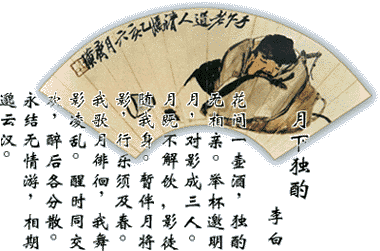 月下独酌
李白
花间一壶酒,独酌
无相亲。举杯邀明
月,对影成三人。
月既不解饮,影徒
随我身。暂伴月将
影,行乐须及春。
我歌月徘徊,我舞
影凌乱。醒时同交
欢,醉后各分散。
永结无情游,相期
邈云汉。